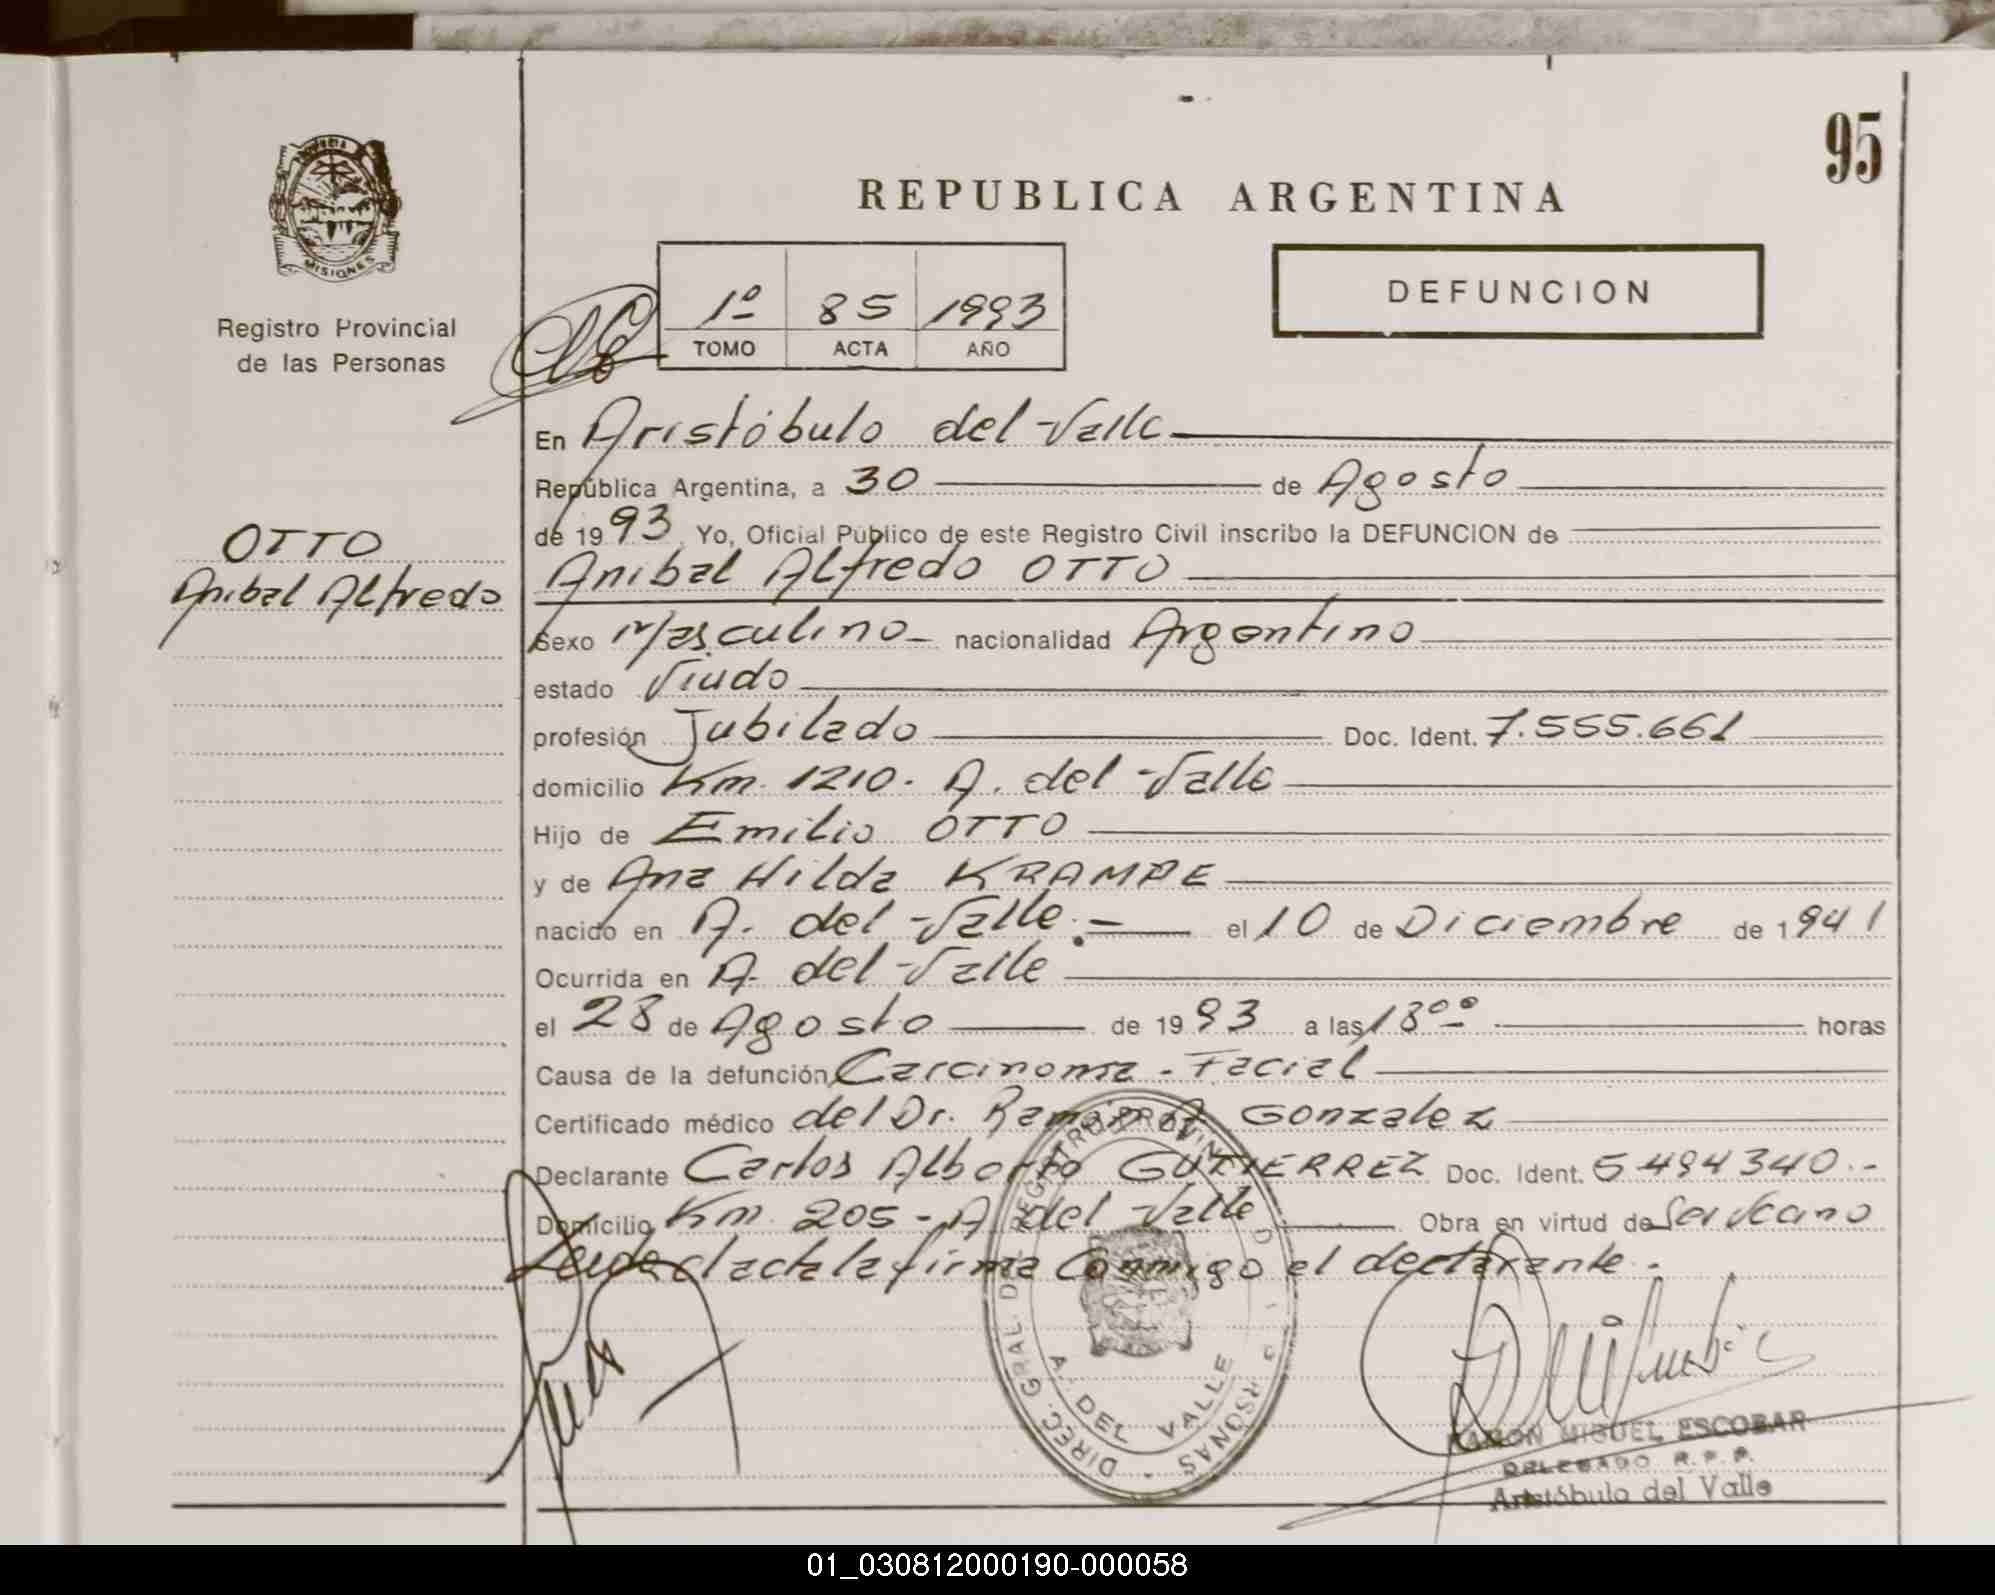 95
REPUBLICA ARGENTINA
MISIONES
Registro Provincial
de las Personas
1º 85 1993
TOMO ACTA AÑO
DEFUNCION
En Aristóbulo del Valle
República Argentina, a 30 de Agosto
de 1993. Yo, Oficial Público de este Registro Civil inscribo la DEFUNCION de
OTTO
Anibal Alfredo
Anibal Alfredo OTTO
Sexo Masculino nacionalidad Argentino
estado Viudo
profesión Jubilado Doc. Ident. 7.555.661
domicilio Km. 1210. A. del Valle
Hijo de Emilio OTTO
y de Ana Hilda KRAMPE
nacido en A. del Valle.- el 10 de Diciembre de 1941
Ocurrida en A. del Valle
el 28 de Agosto de 1993 a las 18ºº horas
Causa de la defunción Carcinoma - Facial
Certificado médico del Dr. Ramón A. Gonzalez
Declarante Carlos Alberto GUTIERREZ Doc. Ident. 5.494340.-
Domicilio Km. 205 - A. del Valle Obra en virtud de
acta la firma Conmigo el declarante.
DIREC. GRAL. DEL REGISTRO PROVINCIAL
A. DEL VALLE
RAMON MIGUEL ESCOBAR
DELEGADO R.P.P.
Aristóbulo del Valle
01_030812000190-000058